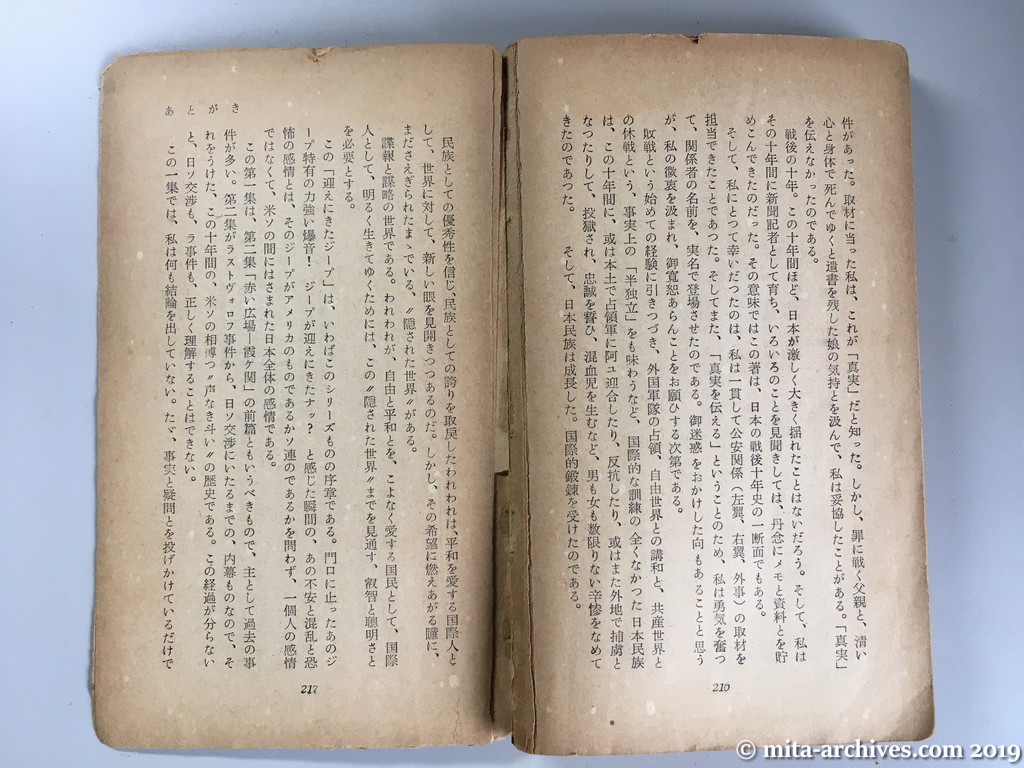 件があった。取材に当った私は、これが「真実」だと知った。しかし、罪に戦く父親と、清い
心と身体で死んでゆくと遺書を残した娘の気持とを汲んで、私は妥協したことがある。「真実」
を伝えなかったのである。
戦後の十年。この十年間ほど、日本が激しく大きく揺れたことはないだろう。そして、私は
その十年間に新聞記者として育ち、いろいろのことを見聞きしては、丹念にメモと資料とを貯
めこんできたのだった。その意味ではこの著は、日本の戦後十年史の一断面でもある。
そして、私にとって幸いだつたのは、私は一貫して公安関係(左翼、右翼、外事)の取材を
担当できたことであつた。そしてまた、「真実を伝える」ということのため、私は勇気を奮つ
て、関係者の名前を、実名で登場させたのである。御迷惑をおかけした向もあることと思う
が、私の微衷を汲まれ、御寛恕あらんことをお願ひする次第である。
敗戦という始めての経験に引きつづき、外国軍隊の占領、自由世界との講和と、共産世界と
の休戦という、事実上の「半独立」をも味わうなど、国際的な訓練の全くなかつた日本民族
は、この十年間に、或は本土で占領軍に阿ユ迎合したり、反抗したり、或はまた外地で捕虜と
なつたりして、投獄され、忠誠を誓ひ、混血児を生むなど、男も女も数限りない辛惨をなめて
きたのであつた。 そして、日本民族は成長した。国際的鍛錬を受けたのである。
210
民族としての優秀性を信じ、民族としての誇りを取戻したわれわれは、平和を愛する国際人と
して、世界に対して、新しい眼を見開きつつあるのだ。しかし、その希望に燃えあがる瞳に、
まださえぎられたまゝでいる、〝隠された世界〟がある。
諜報と謀略の世界である。われわれが、自由と平和とを、こよなく愛する国民として、国際
人として、明るく生きてゆくためには、この〝隠された世界〟までを見通す、叡智と聰明さと
を必要とする。
この「迎えにきたジープ」は、いわばこのシリーズものの序章である。門口に止ったあのジ
ープ特有の力強い爆音! ジープが迎えにきたナッ? と感じた瞬間の、あの不安と混乱と恐
怖の感情とは、そのジープがアメリカのものであるかソ連のであるかを問わず、一個人の感情
ではなくて、米ソの間にはさまれた日本全体の感情である。
この第一集は、第二集「赤い広場―霞ヶ関」の前篇ともいうべきもので、主として過去の事
件が多い。第二集がラストヴォロフ事件から、日ソ交渉にいたるまでの、内幕ものなので、そ
れをうけた、この十年間の、米ソの相搏つ〝声なき斗い〟の歴史である。この経過が分らない
と、日ソ交渉も、ラ事件も、正しく理解することはできない。
この一集では、私は何も結論を出していない。たゞ、事実と疑問とを投げかけているだけで
あとがき
217
© mita-archives.com 2019